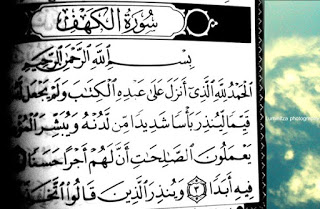 سُورَةُ الْكَهْفِ
بِسْمِ اللَّهِ الرَّحْمَٰنِ الرَّحِيمِ
الْحَمْدُ لِلَّهِ الَّذِي أَنزَلَ عَلَىٰ عَبْدِهِ الْكِتَٰبَ وَلَمْ يَجْعَل لَّهُ
قَيِّمًا لِّيُنذِرَ بَأْسًا شَدِيدًا مِّن لَّدُنْهُ وَيُبَشِّرَ
يَعْمَلُونَ الصَّٰلِحَٰتِ أَنَّ لَهُمْ أَجْرًا حَسَنًا
فِيهِ أَبَدًا ٣ وَيُنذِرَ الَّذِينَ قَالُوا اتَّخَذَ